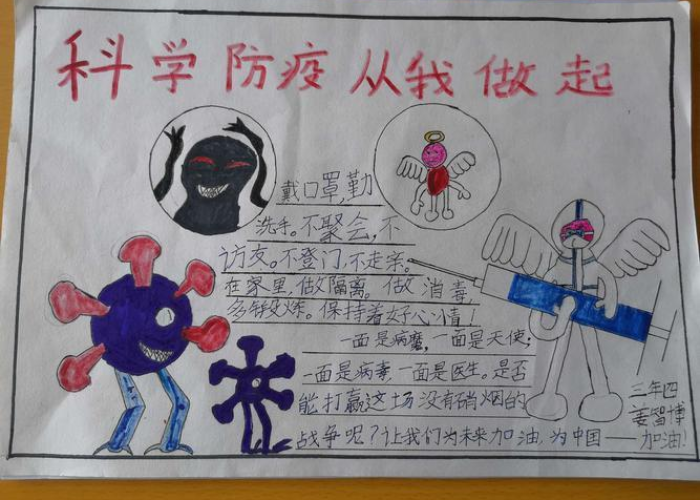 科学防疫 从我做起
戴口罩,勤
洗手。不聚会,不
访友。不登门,不走亲。
在家里,做隔离。做消毒,
多锻炼。保持着好心情!
一面是病魔,一面是天使;
一面是病毒,一面是医生。是否
能打赢这场没有硝烟的
战争呢?让我们为未来加油,为中国——加油!
三年四
姜智博